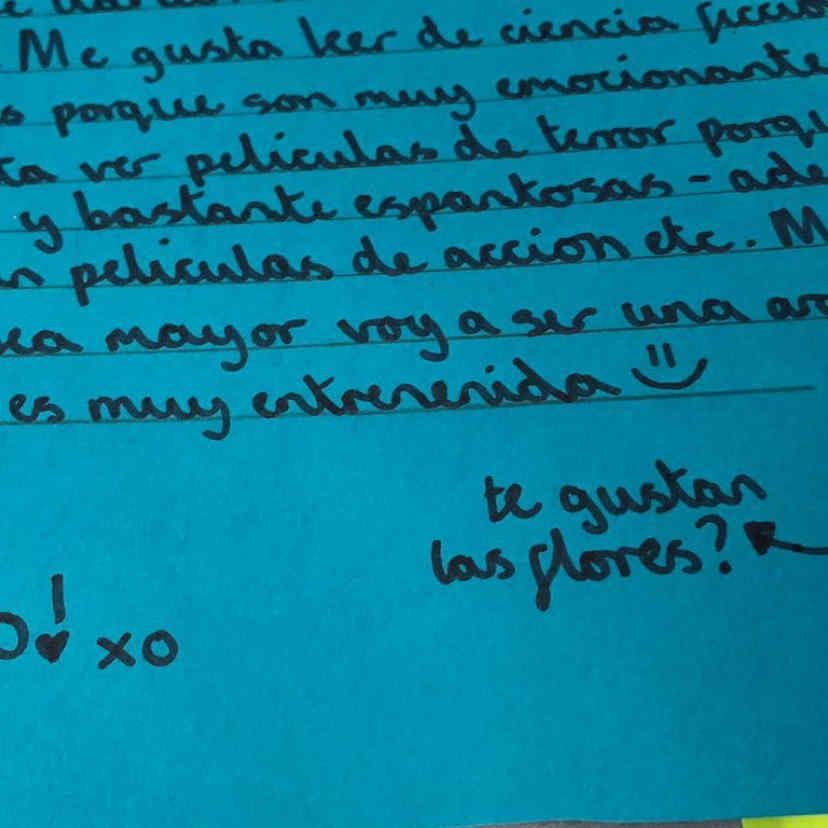 Me gusta leer de ciencia ficcio
porque son muy emocionante
ver peliculas de terror porqu
y bastante espantosas - ade
peliculas de accion etc. M
mayor voy a ser una
es muy entrenenida
te gustan
las flores?
O! xo